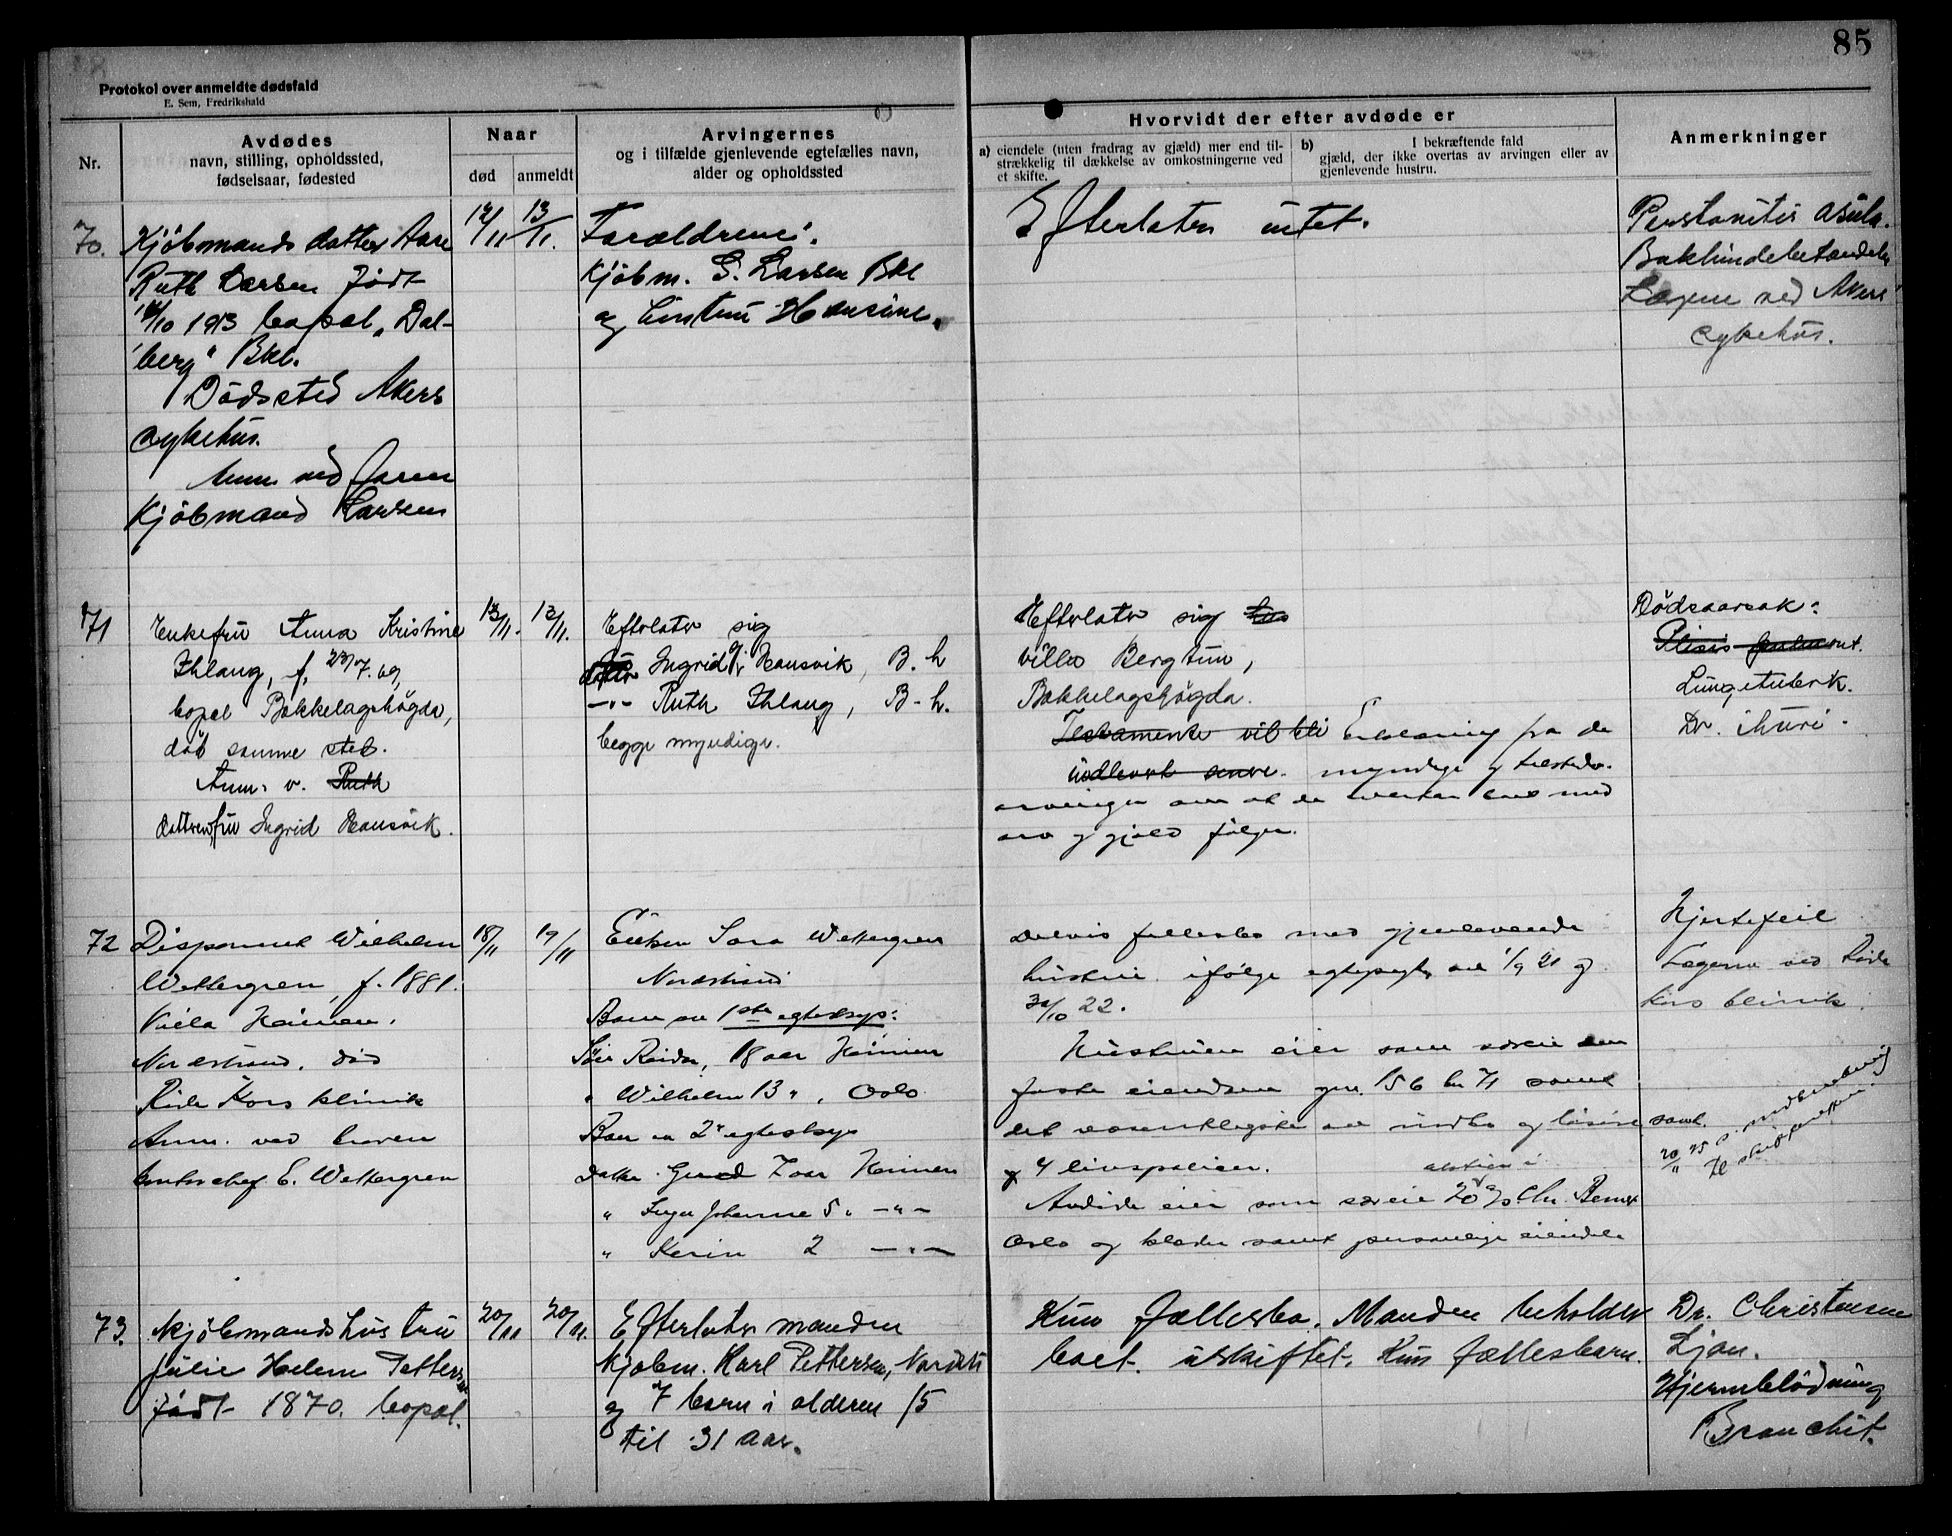 85
Protokol over anmeldte dødsfald
E. Sem, Fredrikshald
Nr.
Avdødes
navn, stilling, opholdssted,
fødselsaar, fødested
Naar
død
anmeldt
Arvingernes
og i tilfælde gjenlevende egtefælles navn,
alder og opholdssted
Hvorvidt der efter avdøde er
a) eiendele (uten fradrag av gjæld) mer end til-
strækkelig til dækkelse av omkostningerne ved
et skifte.
b) I bekræftende fald
gjæld, der ikke overtas av arvingen eller av
gjenlevende hustru.
Anmerkninger
70.
Kjöbmands datter Aase
Ruth Larsen Født
/10 1913 bopæl „Dal-
berg" Bkl.
Dödssted Akers
sykehus.
Anm. ved faren
Kjöbmand Larsen
12/11
13/11.
Forældrene:
Kjöbm. G. Larsen Bkl
og hustru Hansine.
Efterlater intet.
Lægene ved Akers
sykehus.
71
Enkefru Anna Kristine
Ihlang, f. 23/7. 69,
bopel Bekkelagshögda,
död samme sted.
Anm. v. Ruth
datteren, fru Ingrid Hansvik.
13/11.
13/11.
Efterlater sig
datter Ingrid Hansvik, B. h
-"- Ruth Ihlang, B-h.
begge myndige.
Efterlater sig
villa Bergtun,
Bekkelagshögda.
Testamente vil bli Erklæring fra de
indlevert senere. myndige og tilstede.
arvinger om at de overtar boet med
arv og gjæld følger.
Dödsaarsak:
Lungetuberk.
Dr. Thure.
72
Disponent Wilhelm
Wettergren, f. 1881.
Villa Heimen.
Nordstrand. död
Röde Kors klinik
Anm. ved broren
kontorchef E. Wettergren
18/11
19/11
Enken Sara Wettergren
Nordstrand
Barn av 1ste egteskap:
Sön Reidar, 18 aar Heimen
" Wilhelm 13 ", Oslo
Barn av 2' egteskap
Datter Gerd 7 aar Heimen
" Inger Johanne 5 " -"-
" Karin 2 -"-
Delvis fællesbo med gjenlevende
hustru ifølge egtepagt av 1/9 21 og
30/10 22.
Hustruen eier som særeie den
faste eiendom gnr. 156 bn 71 samt
det væsentligste av indbo og lösöre samt
og 4 livspoliser.
Avdöde eier som særeie 20 aktier i A/S Chr. Bemer
Oslo og klæder samt personlige eiendele
Hjertefeil
Lægerne ved Röde
Kors klinik
73.
Kjöbmandshustru
Julie Helene Pettersen
född 1870. bopæl.
20/11
20/11.
Efterlater manden
kjöbm. Karl Pettersen, Nordst.
og 7 barn i alderen 15
til 31 aar.
Kun fællesbo. Manden beholder
boet uskiftet. Kun fællesbarn.
Dr. Christensen
Ljan.
Hjerneblödning
Bronchit.